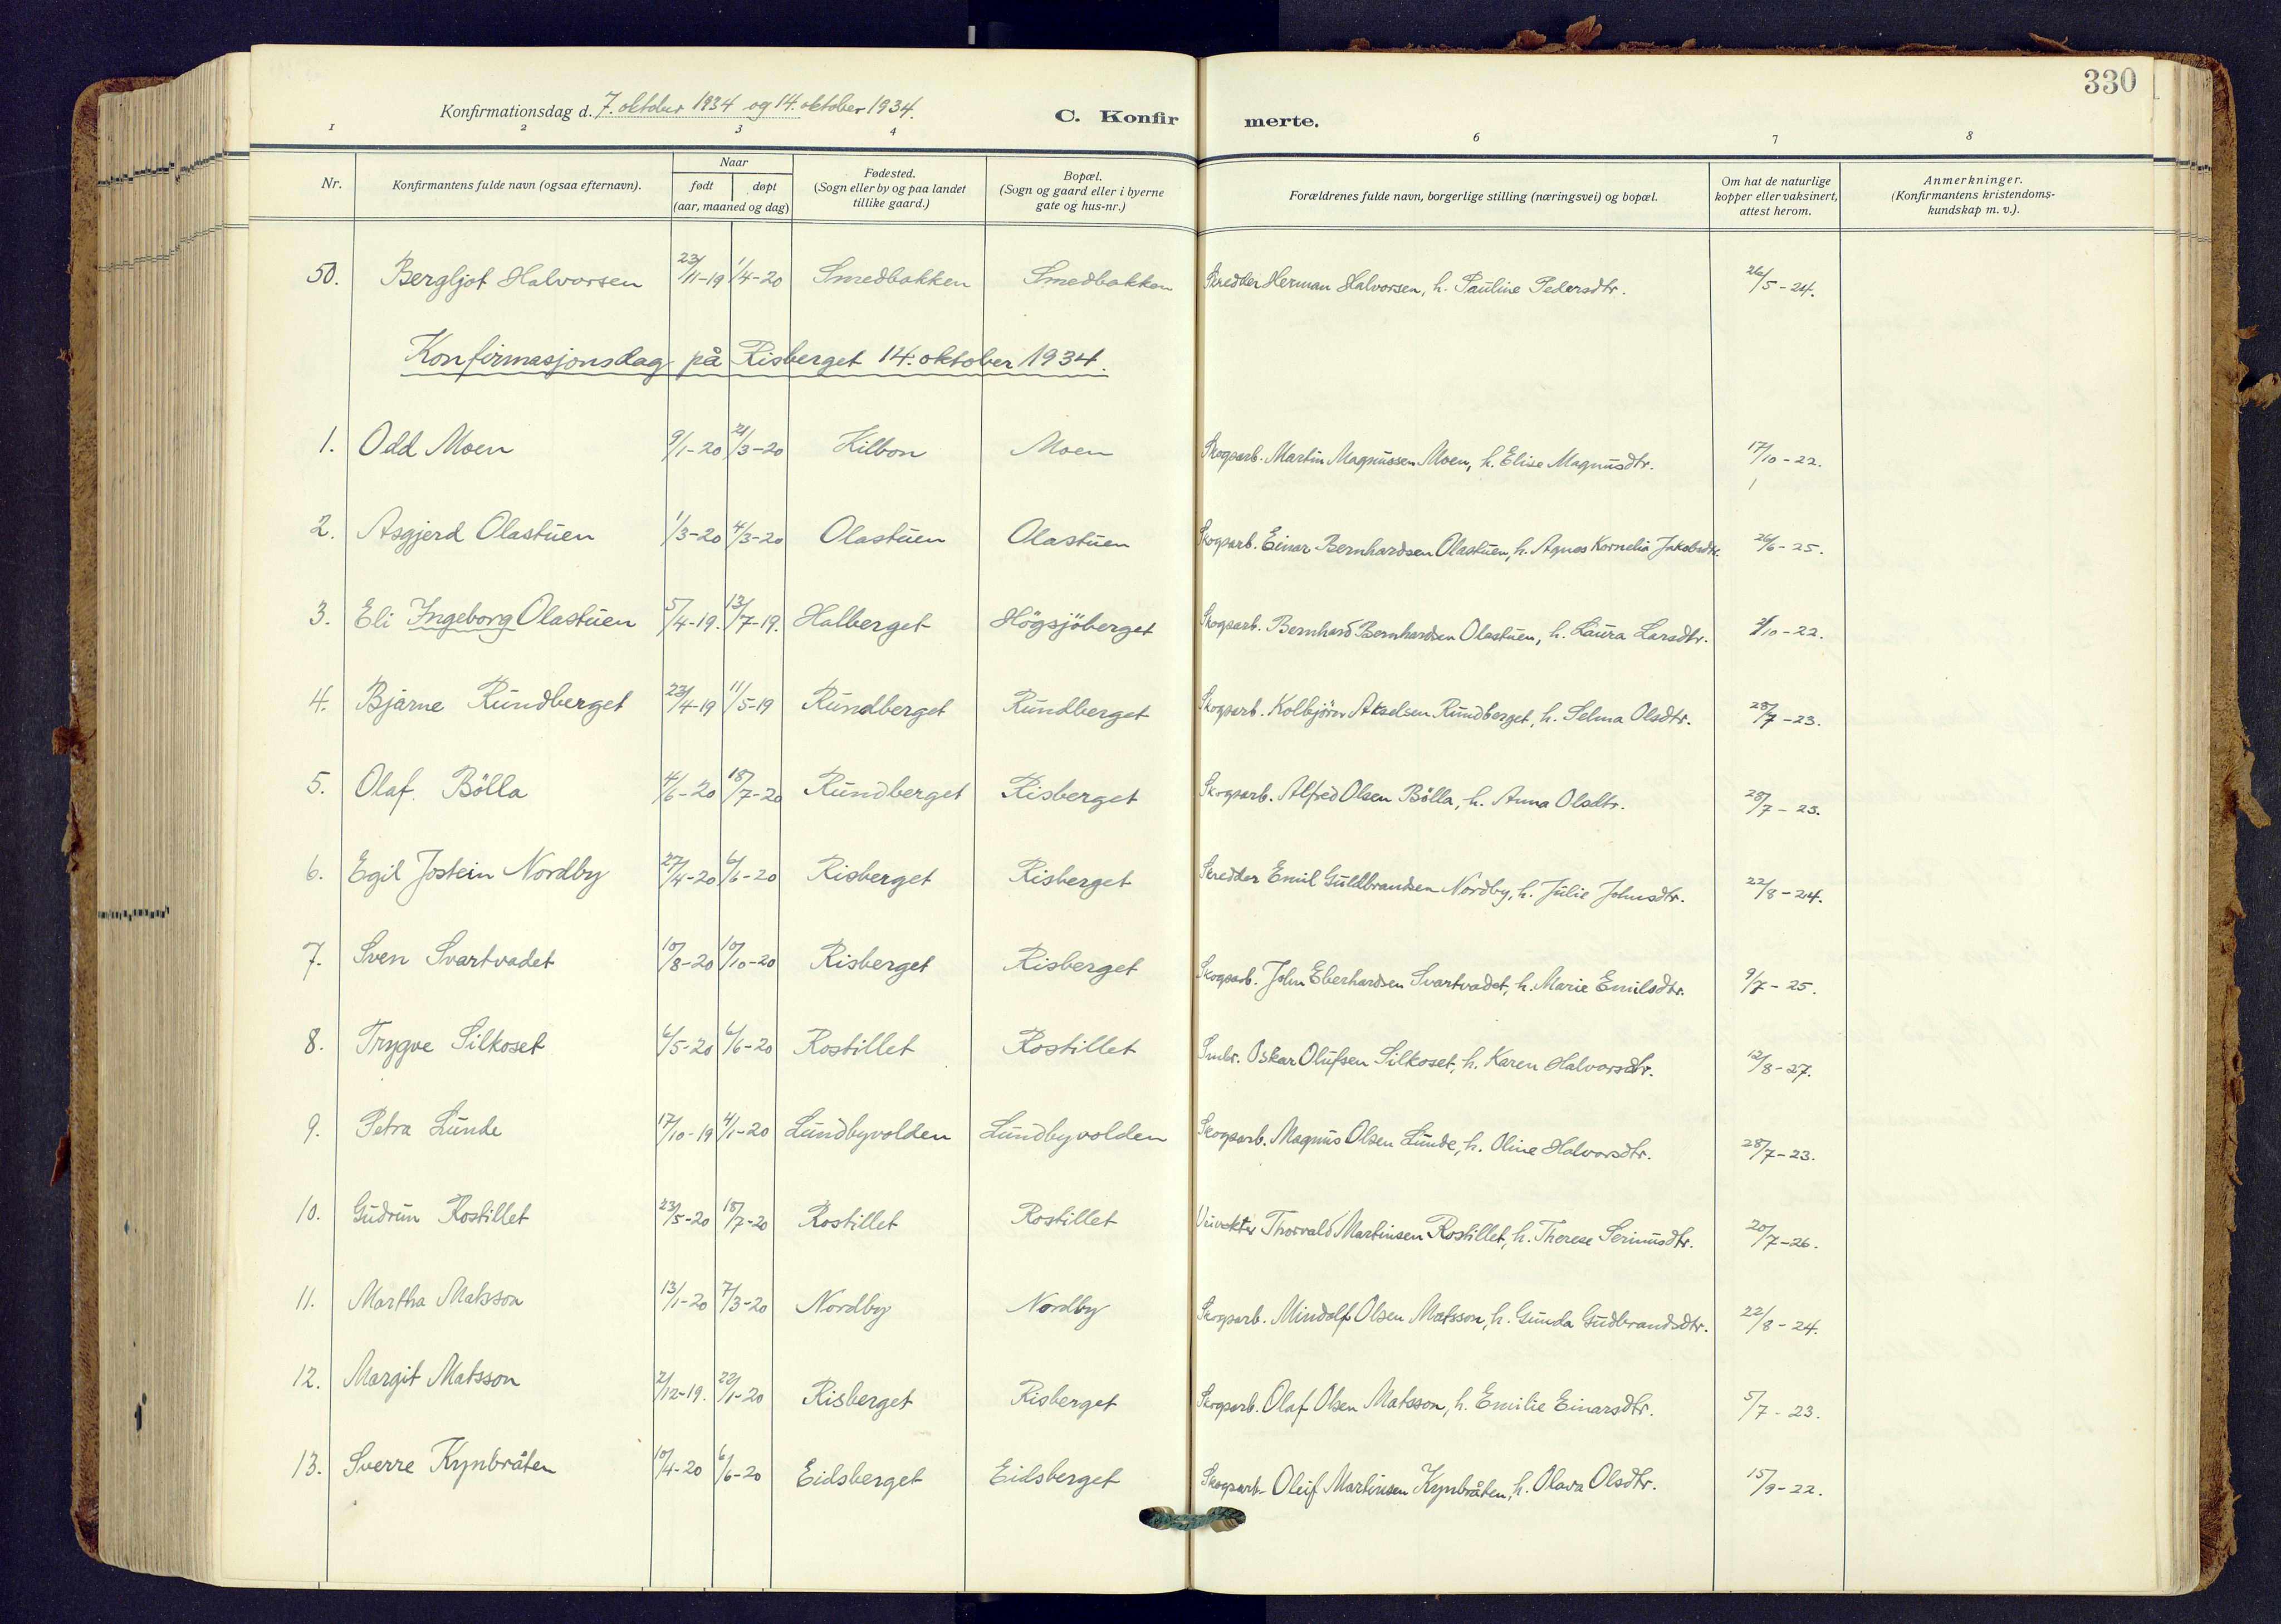 330
Konfirmationsdag d. 7. oktober 1934 og 14. oktober 1934.
C. Konfir merte.
1 2 3 4 6 7 8
Nr. Konfirmantens fulde navn (ogsaa efternavn). Naar født døpt (aar, maaned og dag) Fødested. (Sogn eller by og paa landet tillike gaard.) Bopæl. (Sogn og gaard eller i byerne gate og hus-nr.) Forældrenes fulde navn, borgerlige stilling (næringsvei) og bopæl. Om hat de naturlige kopper eller vaksinert, attest herom. Anmerkninger. (Konfirmantens kristendoms-kundskap m. v.).
50. Bergljot Halvorsen 23/11-19 1/4-20 Smedbakken Smedbakken Skredder Herman Halvorsen, h. Pauline Pedersdtr. 26/5-24.
Konfirmasjonsdag på Risberget 14. oktober 1934.
1. Odd Moen 9/1-20 21/3-20 Kilbon Moen Skogsarb. Martin Magnussen Moen, h. Elise Magnusdtr. 17/10-22.
2. Asgjerd Olastuen 1/3-20 4/3-20 Olastuen Olastuen Skogsarb. Einar Bernhardsen Olastuen, h. Agnes Kornelia Jakobsdtr. 26/6-25.
3. Eli Ingeborg Olastuen 5/4-19. 13/7-19. Halberget Högsjöberget Skogsarb. Bernhard Bernhardsen Olastuen, h. Laura Larsdtr. /10-22.
4. Bjarne Rundberget 23/4-19 11/5-19 Rundberget Rundberget Skogsarb. Kolbjörn Akselsen Rundberget, h. Selma Olsdtr. 28/7-23.
5. Olaf Bölla 4/6-20 18/7-20 Rundberget Risberget Skogsarb. Alfred Olsen Bölla, h. Anna Olsdtr. 28/7-23.
6. Egil Jostein Nordby 27/4-20 6/6-20 Risberget Risberget Skredder Emil Guldbrandsen Nordby, h. Julie Johnsdtr. 22/8-24.
7. Sven Svartvadet 10/8-20 10/10-20 Risberget Risberget Skogsarb. John Eberhardsen Svartvadet, h. Marie Emilsdtr. 9/7-25.
8. Trygve Silkoset 6/5-20 6/6-20 Rostillet Rostillet Smbr. Oskar Olufsen Silkoset, h. Karen Halvorsdtr. 12/8-27.
9. Petra Lunde 17/10-19 4/1-20 Lundbyvolden Lundbyvolden Skogsarb. Magnus Olsen Lunde, h. Oline Halvorsdtr. 28/7-23.
10. Gudrun Rostillet 23/5-20 18/7-20 Rostillet Rostillet Thorvald Martinsen Rostillet, h. Therese Serinusdtr. 20/7-26.
11. Martha Matsson 13/1-20 7/3-20 Nordby Nordby Skogsarb. Mindolf Olsen Matsson, h. Gunda Gudbrandsdtr. 22/8-24.
12. Margit Matsson 2/12-19. 22/1-20 Risberget Risberget Skogsarb. Olaf Olsen Matsson, h. Emilie Einarsdtr. 5/7-23.
13. Sverre Kynbråten 10/4-20 6/6-20 Eidsberget Eidsberget Skogsarb. Oleif Martinsen Kynbråten, h. Olava Olsdtr. 15/9-22.